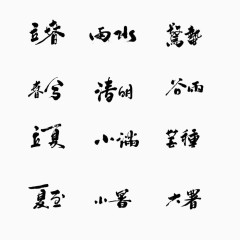 立春 雨水 驚蟄
春分 清明 谷雨
立夏 小滿 芒種
夏至 小暑 大暑